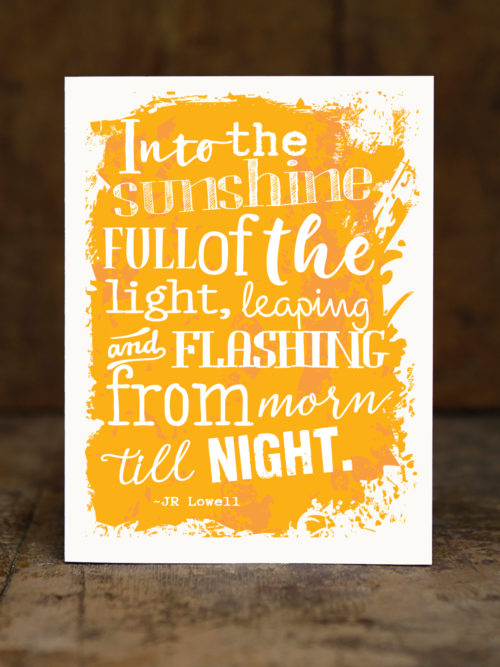 Into the
sunshine
FULL of the
light, leaping
and FLASHING
from morn
till NIGHT.
~JR Lowell